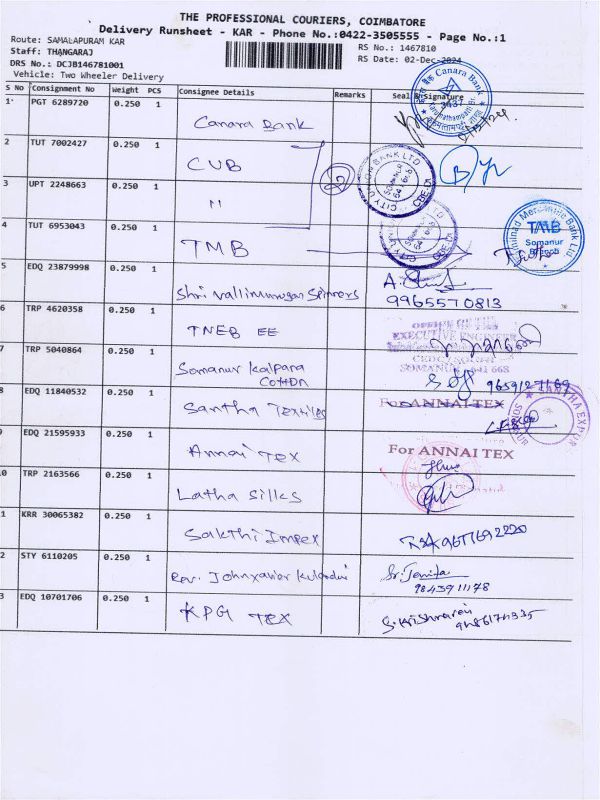 THE PROFESSIONAL COURIERS, COIMBATORE
Delivery Runsheet - KAR - Phone No.:0422-3505555 - Page No.:1
Route: SAMALAPURAM KAR
Staff: THANGARAJ
DRS No.: DCJB146781001
Vehicle: Two Wheeler Delivery
RS No.: 1467810
RS Date: 02-Dec-2024
S No Consignment No Weight PCS Consignee Details Remarks Seal & Signature
1 PGT 6289720 0.250 1 Canara Bank
Canara Bank
2 TUT 7002427 0.250 1 CUB
2
CITY UNION BANK LTD
CBE-DT
3 UPT 2248663 0.250 1 "
4 TUT 6953043 0.250 1 TMB
Tamilnad Mercantile Bank Ltd.
TMB
Somanur
Branch
5 EDQ 23879998 0.250 1 Shri Vallimurugan Spinners
9965570813
6 TRP 4620358 0.250 1 TNEB EE
OFFICE OF THE
EXECUTIVE ENGINEER
SOMANUR 641 668
7 TRP 5040864 0.250 1 Somanur Kalpana
Cotton
9659127169
8 EDQ 11840532 0.250 1 Santha Textiles
For ANNAI TEX
9 EDQ 21595933 0.250 1 Annai Tex
For ANNAI TEX
0 TRP 2163566 0.250 1 Latha Silks
1 KRR 30065382 0.250 1 Sakthi Impex
9677692220
2 STY 6110205 0.250 1 Rev. Johnxavier
Sr. Jenita
9843911178
3 EDQ 10701706 0.250 1 KPG Tex